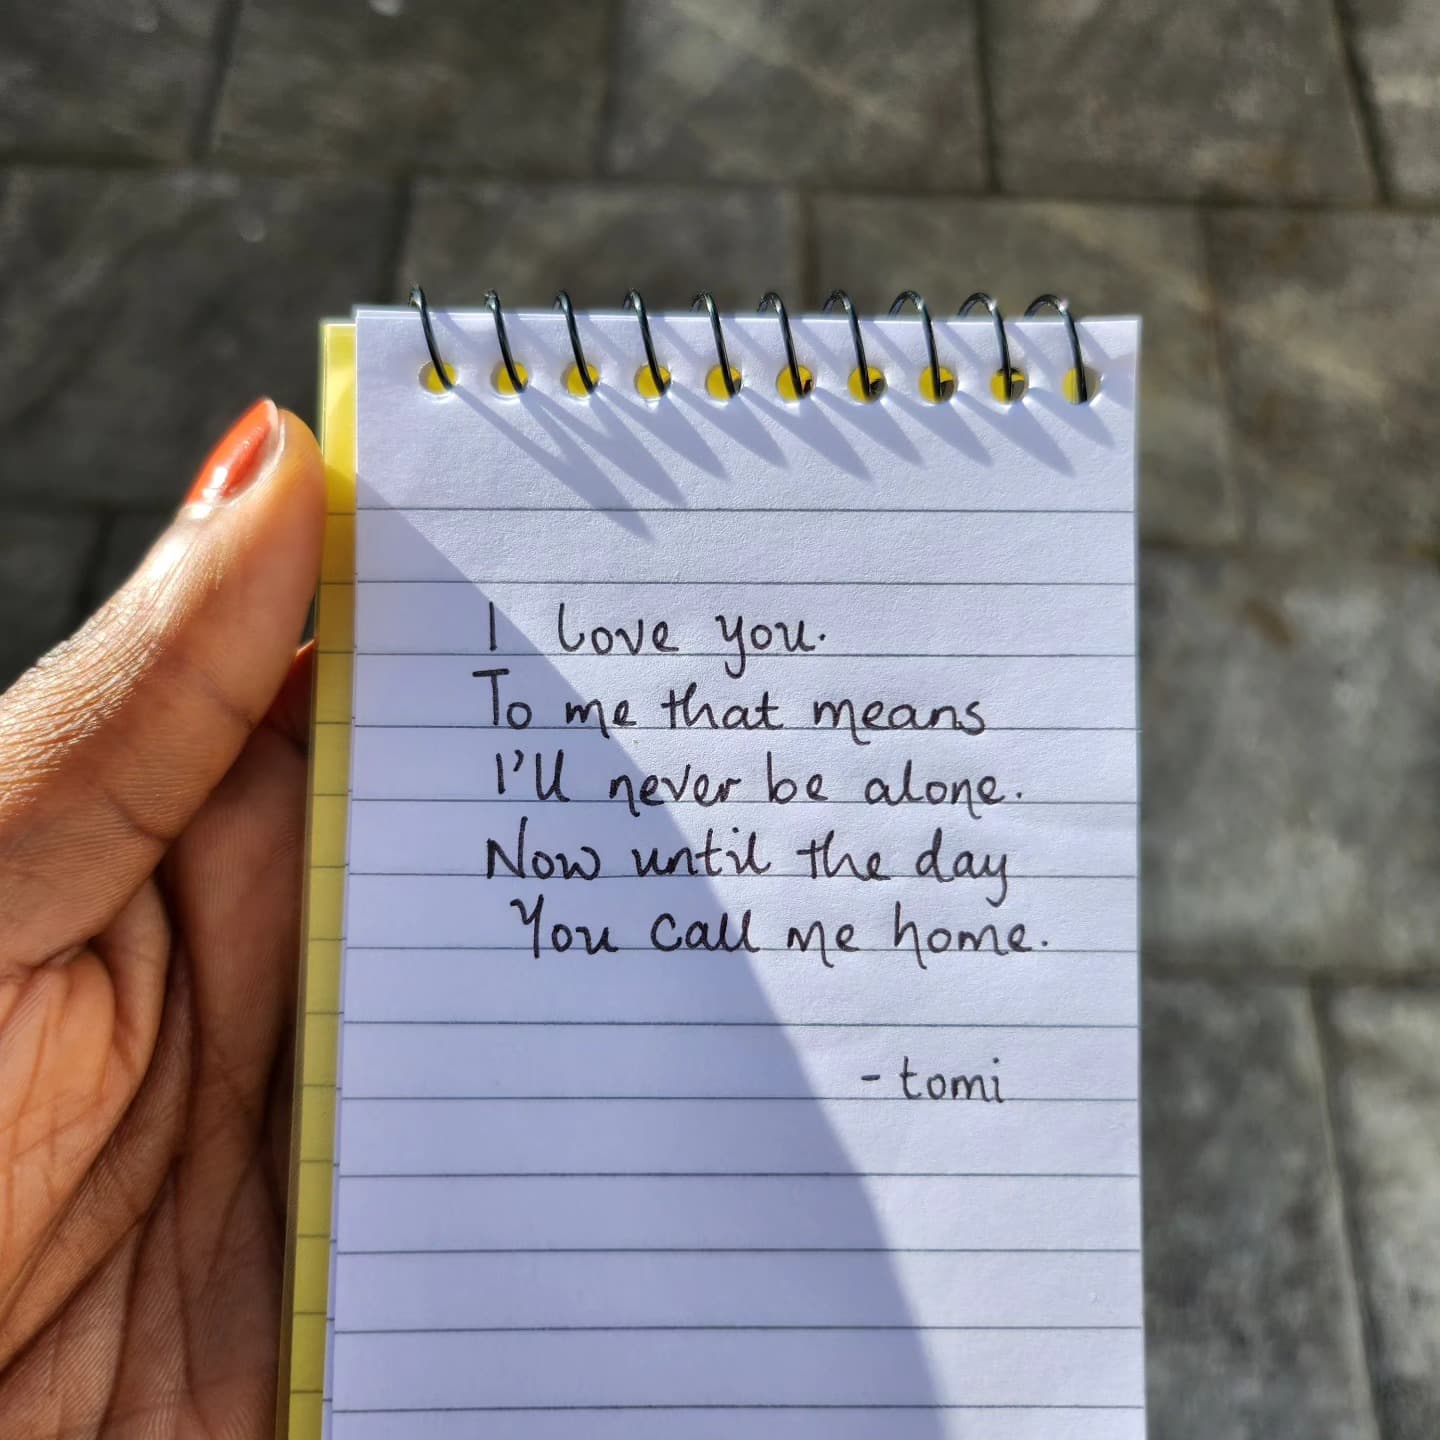 I love you.
To me that means
I'll never be alone.
Now until the day
You call me home.
- tomi